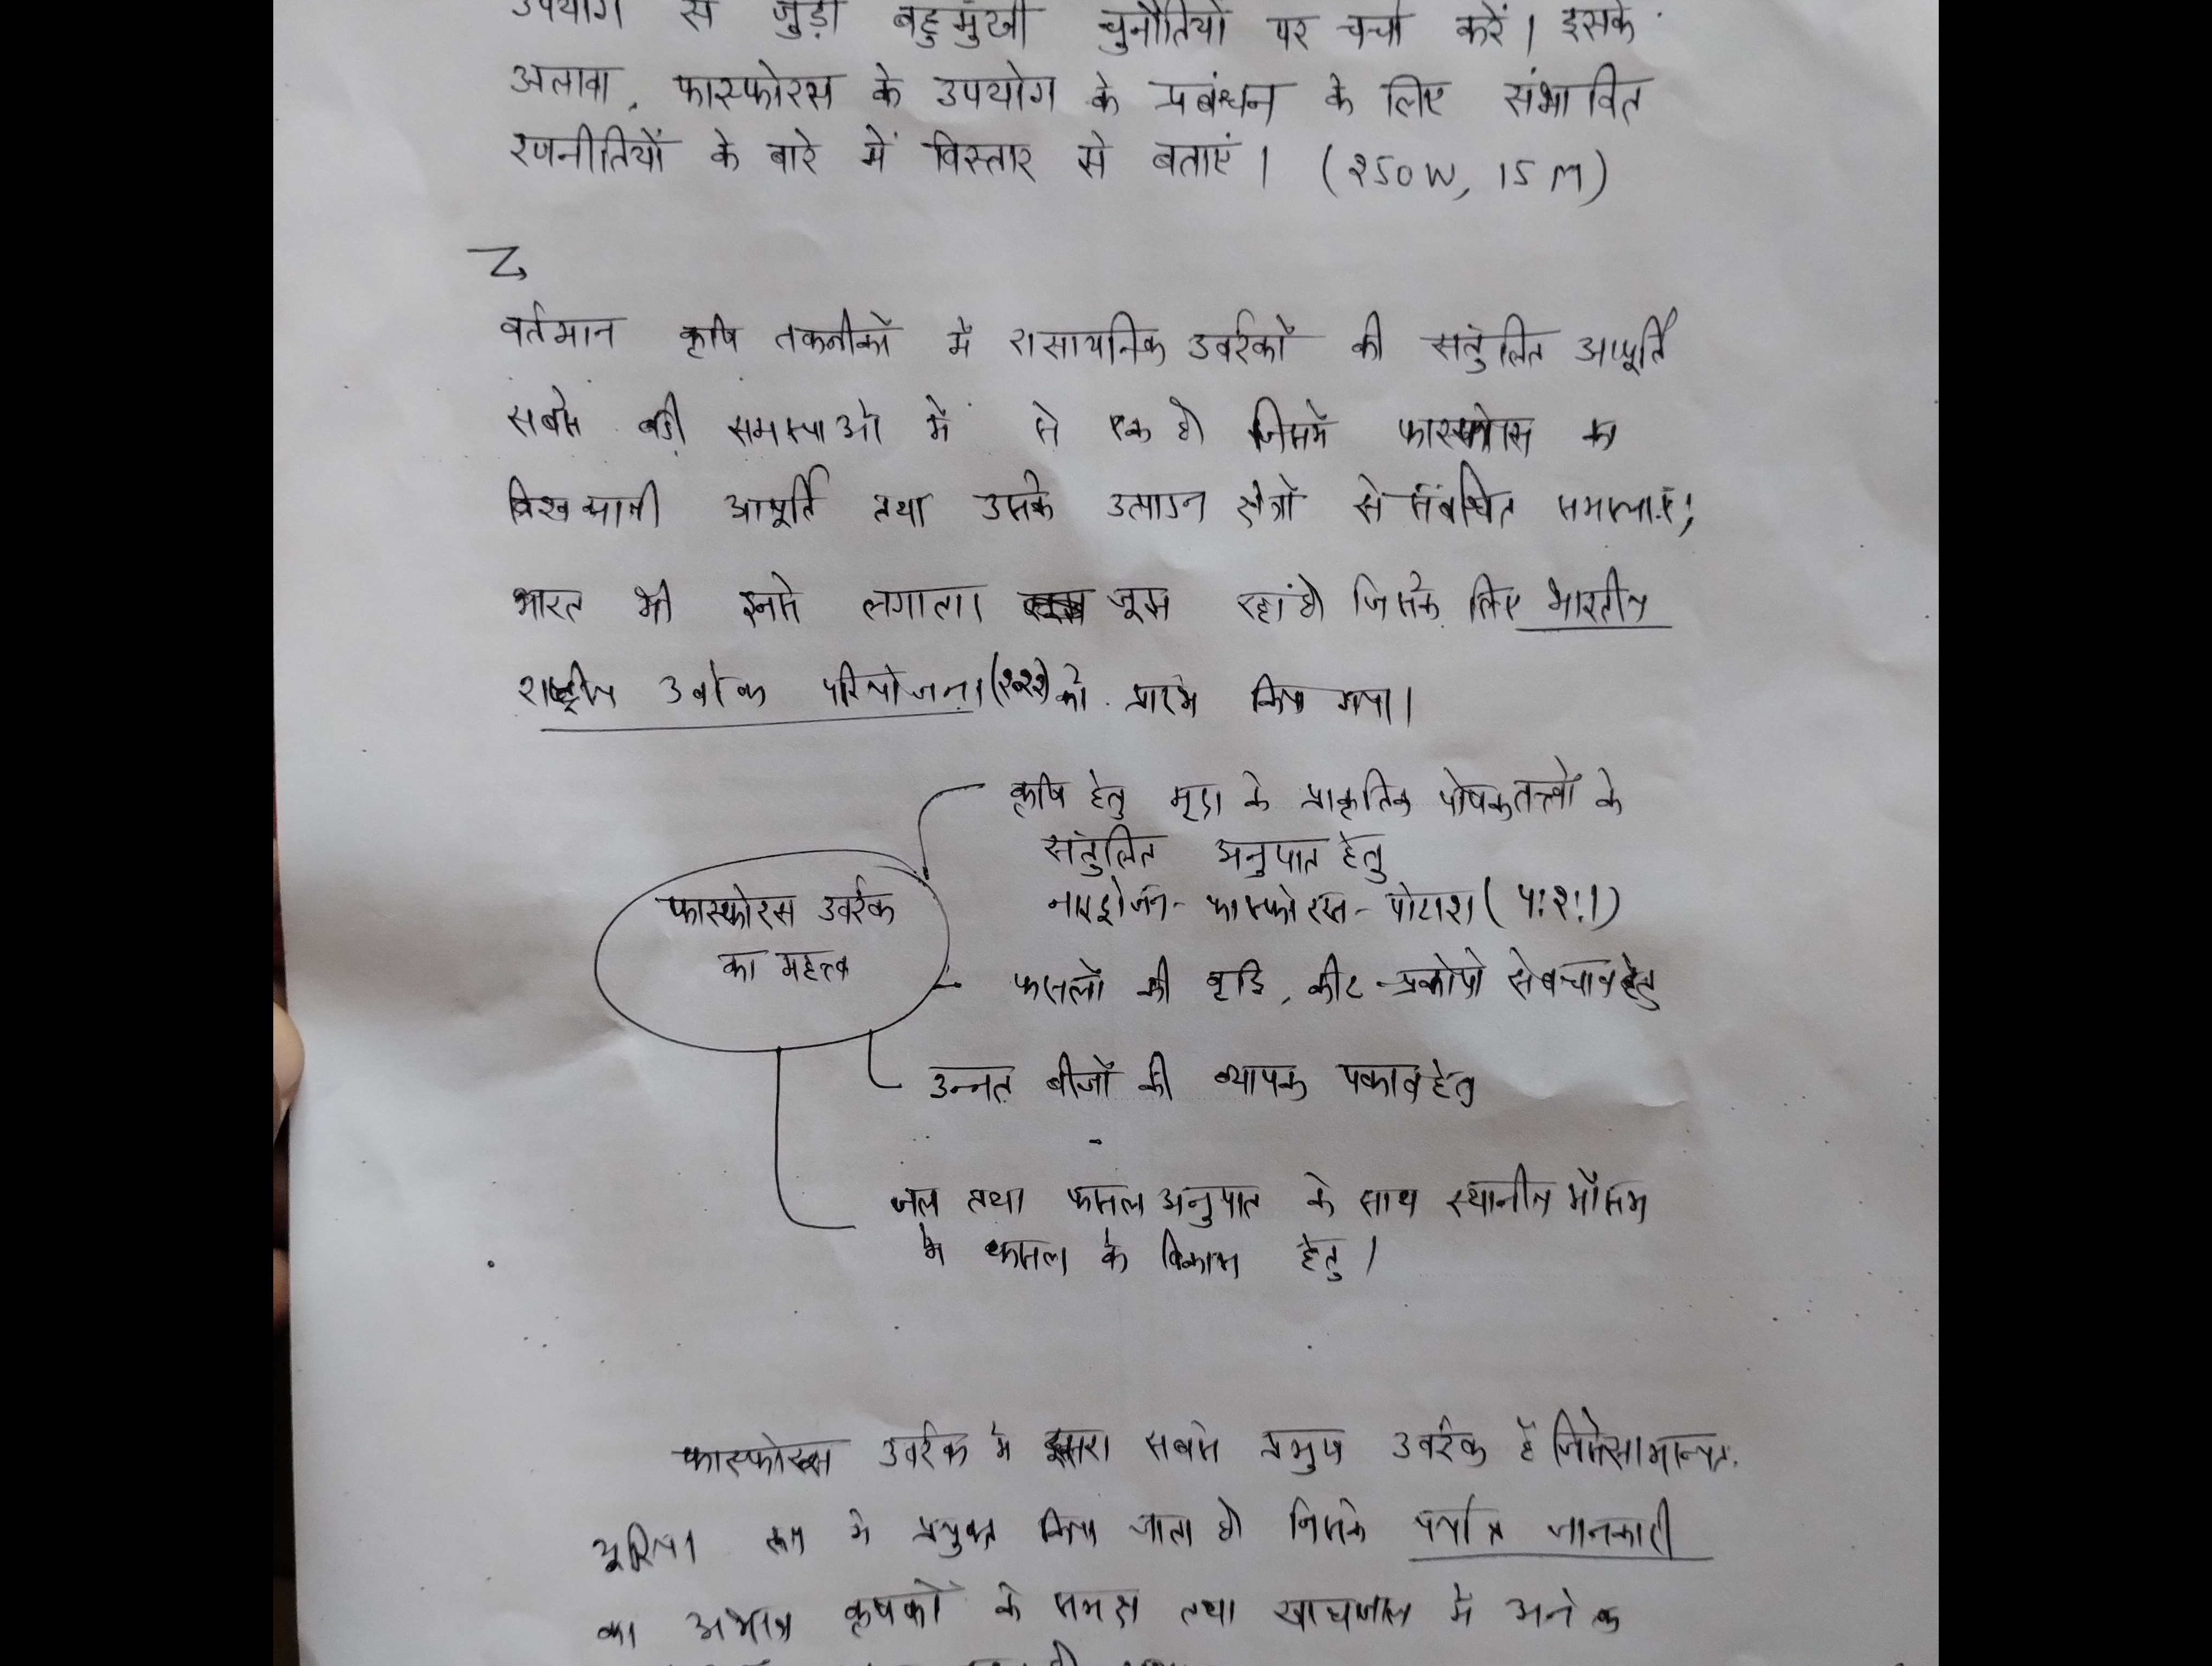 उपयोग से जुड़ी बहुमुखी चुनौतियों पर चर्चा करें। इसके
अलावा, फास्फोरस के उपयोग के प्रबंधन के लिए संभावित
रणनीतियों के बारे में विस्तार से बताएं। (250W, 15M)
वर्तमान कृषि तकनीकों में रासायनिक उर्वरकों की संतुलित आपूर्ति
सबसे बड़ी समस्याओं में से एक है जिसमें फास्फोरस का
विश्वव्यापी आपूर्ति तथा उसके उत्पादन क्षेत्रों से संबंधित समस्याएं;
भारत भी इनसे लगातार जूझ रहा है जिसके लिए भारतीय
राष्ट्रीय उर्वरक परियोजना को प्रारंभ किया गया।
कृषि हेतु मृदा के प्राकृतिक पोषकतत्वों के
संतुलित अनुपात हेतु
नाइट्रोजन - फास्फोरस - पोटाश (4:2:1)
फास्फोरस उर्वरक
का महत्व
फसलों की वृद्धि, कीट-प्रकोपों से बचाव हेतु
उन्नत बीजों की व्यापक पकाव हेतु
जल तथा फसल अनुपात के साथ स्थानीय मौसम
में फसल के विकास हेतु।
फास्फोरस उर्वरक में दूसरा सबसे प्रमुख उर्वरक है जिसे सामान्यत:
यूरिया रूप में प्रयुक्त किया जाता है जिसके पर्याप्त जानकारी
का अभाव कृषकों के समक्ष तथा खाद्यजाल में अनेक